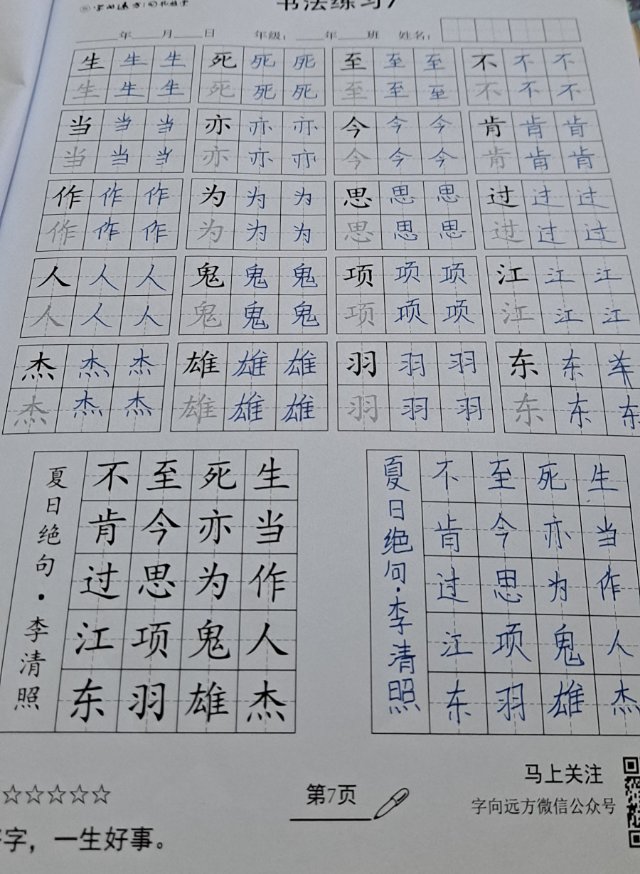 书法练习7
年 月 日 年级： 年 班 姓名：
生 生 生 死 死 死 至 至 至 不 不 不
生 生 生 死 死 死 至 至 至 不 不 不
当 当 当 亦 亦 亦 今 今 今 肯 肯 肯
当 当 当 亦 亦 亦 今 今 今 肯 肯 肯
作 作 作 为 为 为 思 思 思 过 过 过
作 作 作 为 为 为 思 思 思 过 过 过
人 人 人 鬼 鬼 鬼 项 项 项 江 江 江
人 人 人 鬼 鬼 鬼 项 项 项 江 江 江
杰 杰 杰 雄 雄 雄 羽 羽 羽 东 东
杰 杰 杰 雄 雄 雄 羽 羽 羽 东 东 东
夏日绝句·李清照
生当作人杰
死亦为鬼雄
至今思项羽
不肯过江东
夏日绝句·李清照
生当作人杰
死亦为鬼雄
至今思项羽
不肯过江东
☆☆☆☆☆
第7页
马上关注
字向远方微信公众号
字，一生好事。